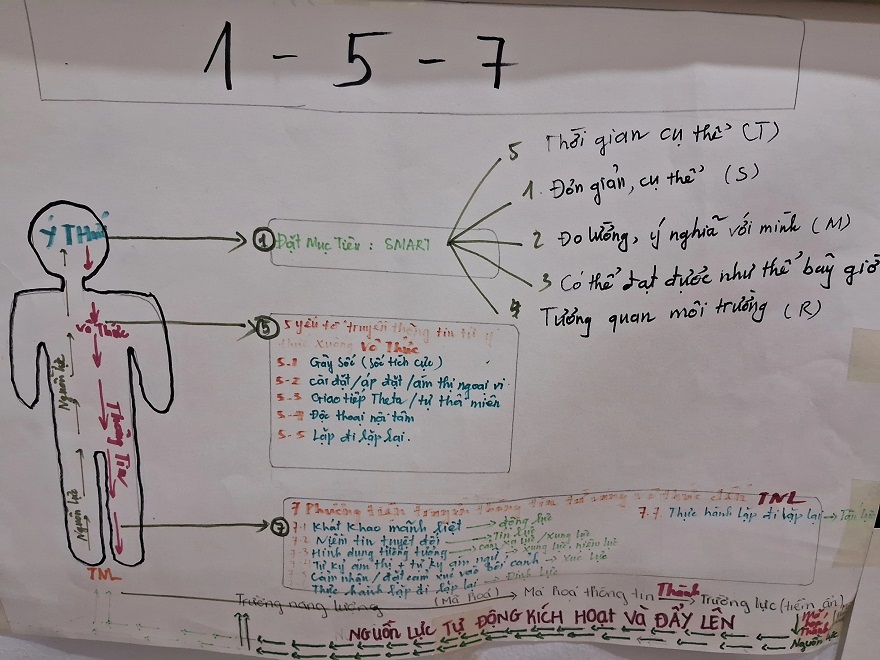 1 - 5 - 7
5 Thời gian cụ thể (T)
1. Đơn giản, cụ thể (S)
2 Đo lường, ý nghĩa với mình (M)
3 Có thể đạt được như thể bây giờ
4 Tương quan môi trường (R)
Ý Thức
① Đặt Mục Tiêu : SMART
Vô Thức
Thông Tin
Nguồn lực
Nguồn lực
TNL
⑤ 5 yếu tố truyền thông tin từ ý
thức xuống Vô Thức
5-1 Gây sốc (sốc tích cực)
5-2 cài đặt/áp đặt/ám thị ngoại vi
5-3 Giao tiếp Theta/tự thôi miên
5-4 Độc thoại nội tâm
5-5 Lặp đi lặp lại.
⑦ 7 Phương tiện truyền thông tin từ vô thức đến TNL
7-1 Khát khao mãnh liệt → động lực
7-2 Niềm tin tuyệt đối → Tin lực
7-3 Hình dung tưởng tượng → xung lực
7-4 Tự kỷ ám thị + tự kỷ ám ngữ → xung lực, niệm lực
Cảm nhận / đặt cảm xúc vào bối cảnh → xúc lực
Thực hành lặp đi lặp lại → Định lực
7.7 Thực hành lặp đi lặp lại →
Trường năng lượng (Mã hoá) → Mã hoá thông tin Thành → Trường lực (tiềm ẩn)
NGUỒN LỰC TỰ ĐỘNG KÍCH HOẠT VÀ ĐẨY LÊN
Nguồn lực